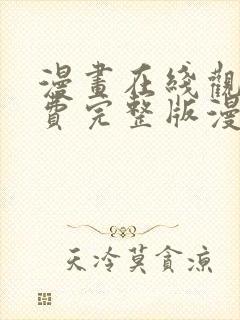 漫畫在綫觀
費完整版漫
天冷莫貪涼